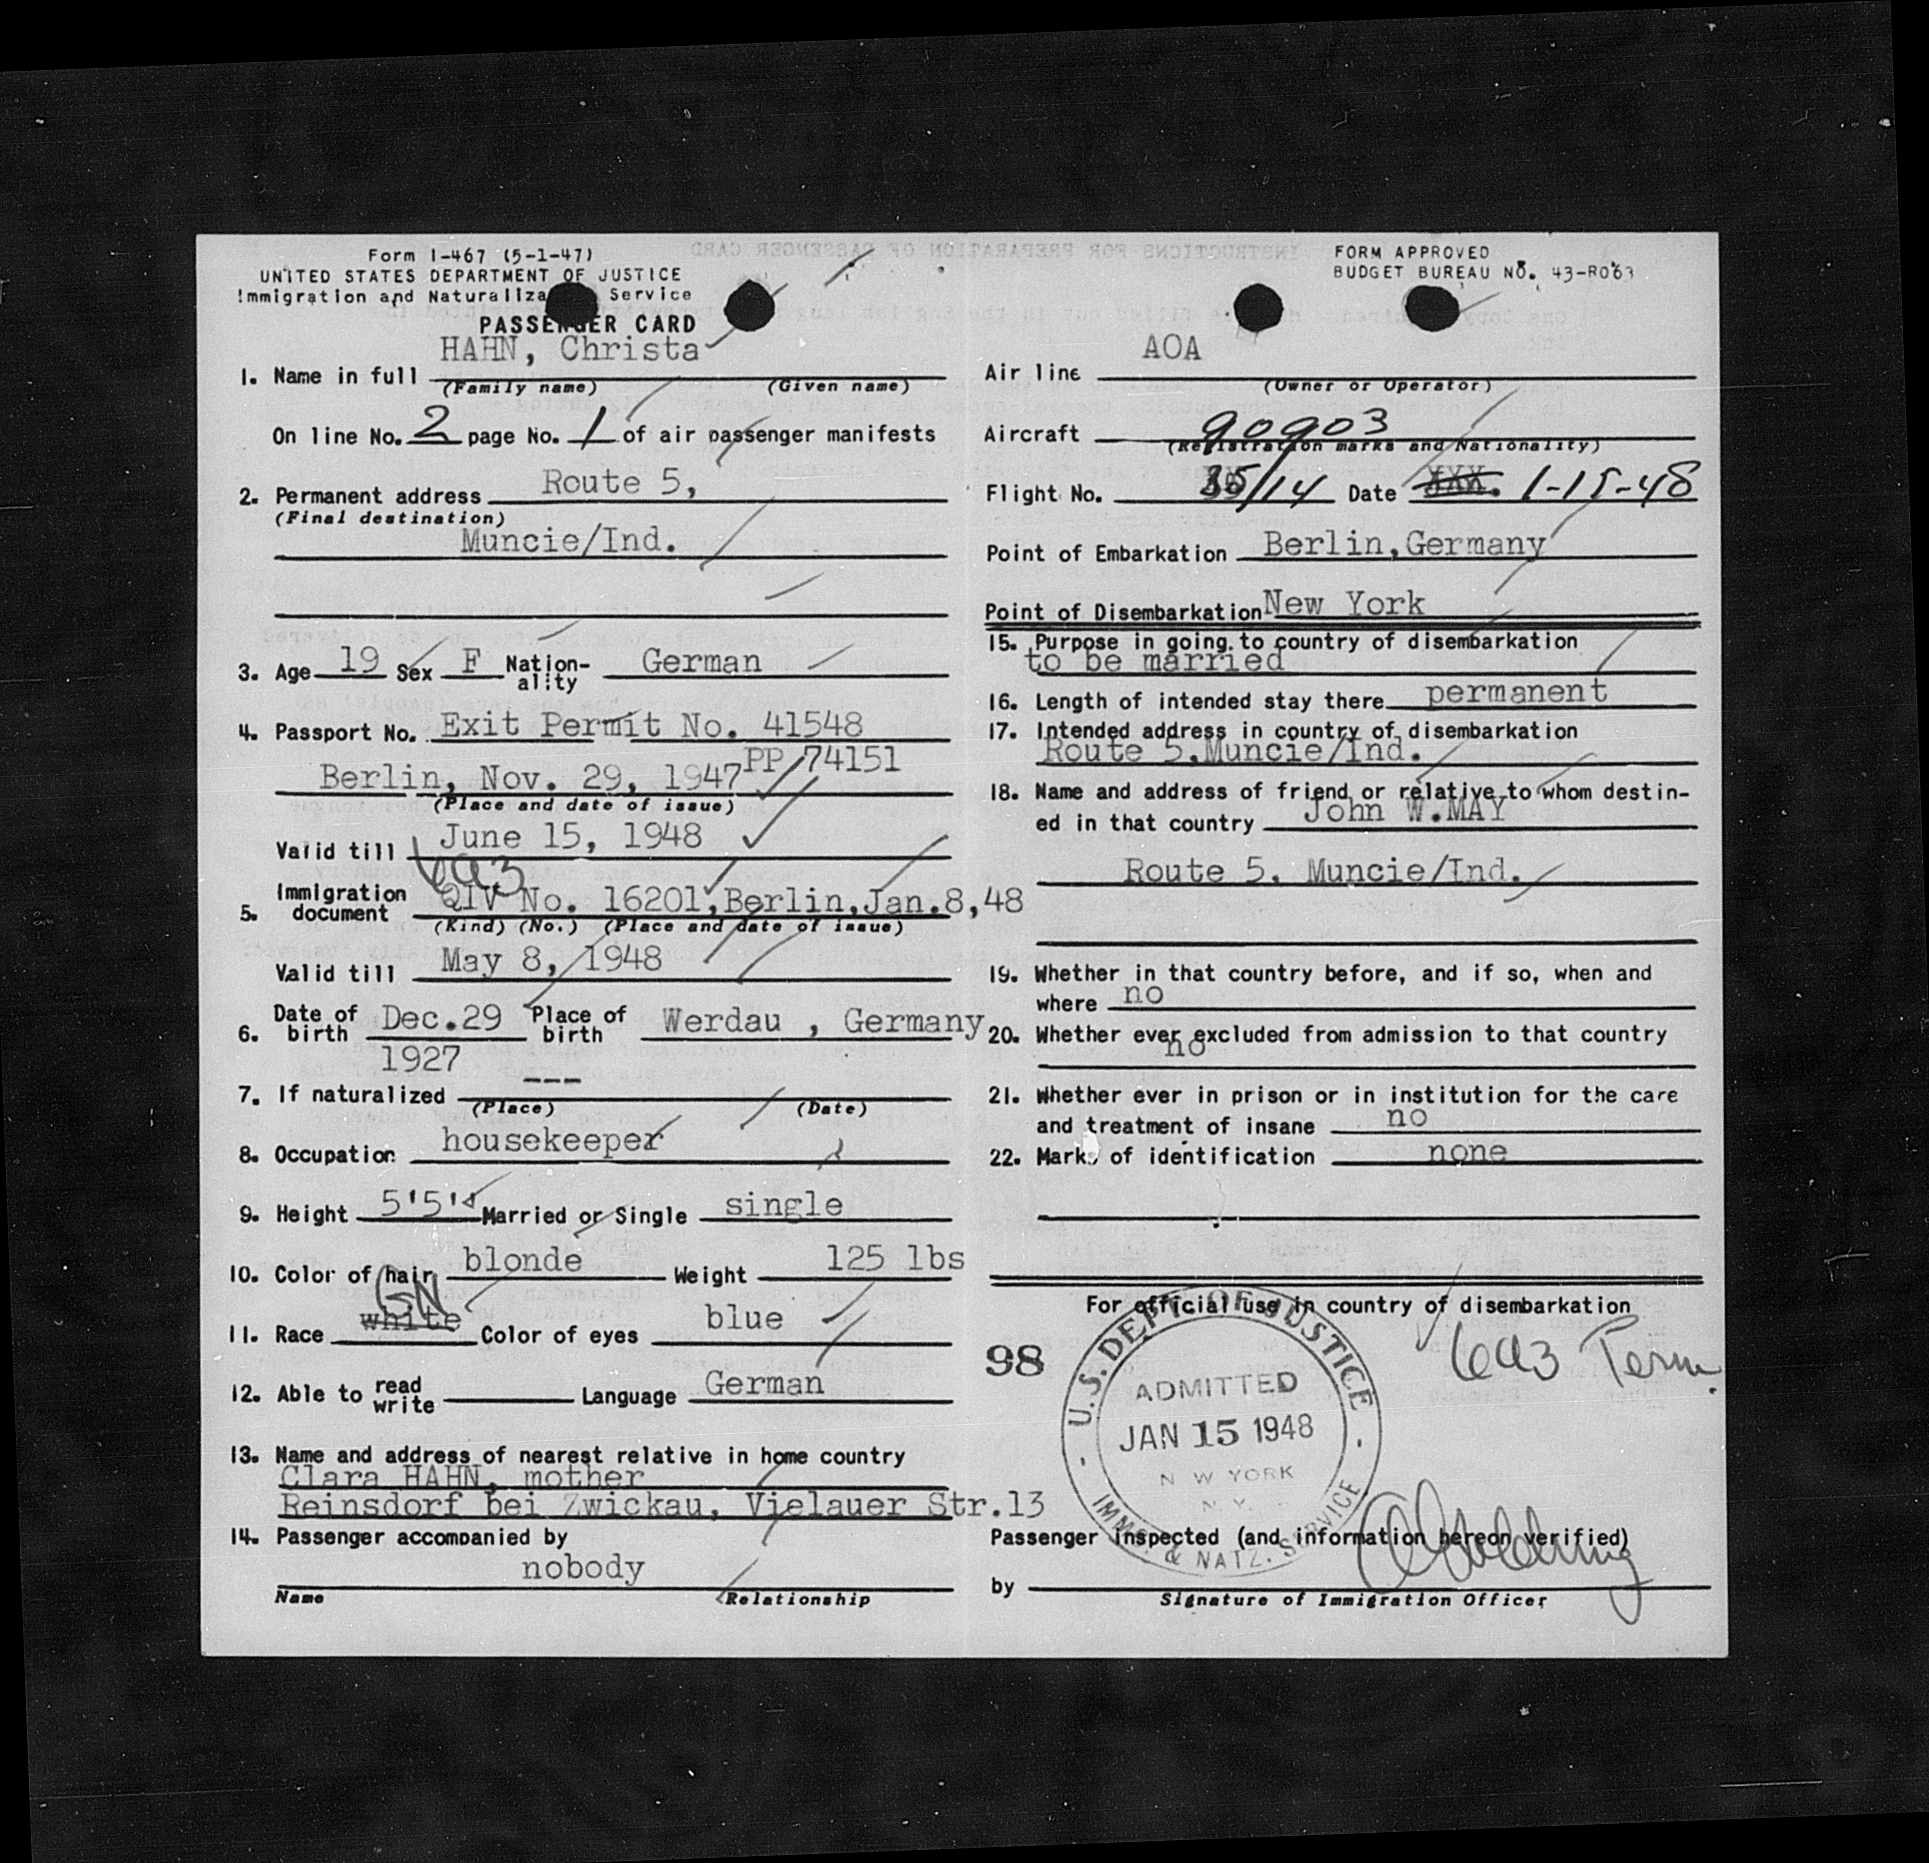 Form I-467 (5-1-47)
UNITED STATES DEPARTMENT OF JUSTICE
Immigration and Naturaliza Service
PASSENGER CARD
HAHN, Christa
1. Name in full
(Family name) (Given name)
On line No. 2 page No. 1 of air passenger manifests
2. Permanent address Route 5,
(Final destination)
Muncie/Ind.
3. Age 19 Sex F Nation-ality German
4. Passport No. Exit Permit No. 41548
Berlin, Nov. 29, 1947 PP 74151
(Place and date of issue)
Valid till June 15, 1948
6a3
5. Immigration document QIV No. 16201, Berlin, Jan.8,48
(Kind) (No.) (Place and date of issue)
Valid till May 8, 1948
6. Date of birth Dec.29 Place of birth Werdau , Germany
1927
7. If naturalized ---
(Place) (Date)
8. Occupation housekeeper
9. Height 5'5" Married or Single single
10. Color of hair blonde Weight 125 lbs
GN
11. Race white Color of eyes blue
12. Able to read write Language German
13. Name and address of nearest relative in home country
Clara HAHN, mother
Reinsdorf bei Zwickau, Vielauer Str.13
14. Passenger accompanied by
nobody
Name Relationship
FORM APPROVED
BUDGET BUREAU NO. 43-R063
Air line AOA
(Owner or Operator)
Aircraft 90903
(Registration marks and Nationality)
Flight No. /14 Date XXX. 1-15-48
Point of Embarkation Berlin, Germany
Point of Disembarkation New York
15. Purpose in going to country of disembarkation
to be married
16. Length of intended stay there permanent
17. Intended address in country of disembarkation
Route 5.Muncie/Ind.
18. Name and address of friend or relative to whom destin-
ed in that country John W.MAY
Route 5. Muncie/Ind.
19. Whether in that country before, and if so, when and
where no
20. Whether ever excluded from admission to that country
no
21. Whether ever in prison or in institution for the care
and treatment of insane no
22. Marks of identification none
For official use in country of disembarkation
98
6a3 Perm.
U.S. DEPT. OF JUSTICE
ADMITTED
JAN 15 1948
N W YORK
N. Y.
IMM. & NATZ. SERVICE
Passenger inspected (and information hereon verified)
by
Signature of Immigration Officer